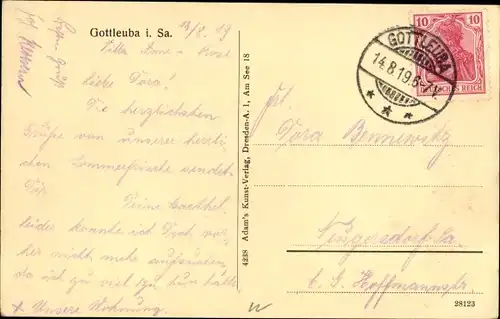 Gottleuba i. Sa.
13/8. 19
Villa Dane-
Liebe Dora!
Die herzlichsten
Grüße von unserer herrli-
chen Sommerfrische sendet
Dir
Deine Baethel.
Leider konnte ich Dich vor-
her nicht mehr aufsuchen,
da ich zu viel zu tun hatte
+ Unsere Wohnung.
4238 Adam's Kunst-Verlag, Dresden-A. 1, Am See 18
GOTTLEUBA
14.8.19.
10 10
DEUTSCHES REICH
Frl.
Dora Bennewitz
Neugersdorf Sa.
b. G. Hoffmannstr
28123